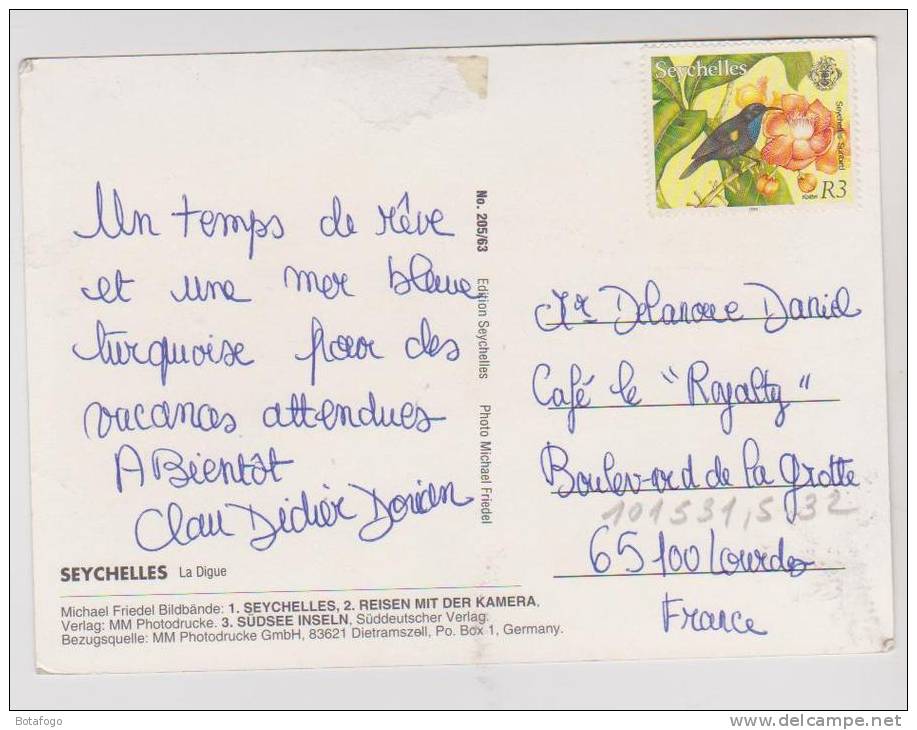 Un temps de rêve
et une mer bleue
turquoise pour des
vacances attendues
A Bientôt
Clau Didier Dorian
SEYCHELLES La Digue
Michael Friedel Bildbände: 1. SEYCHELLES, 2. REISEN MIT DER KAMERA,
Verlag: MM Photodrucke. 3. SÜDSEE INSELN, Süddeutscher Verlag.
Bezugsquelle: MM Photodrucke GmbH, 83621 Dietramszell, Po. Box 1, Germany.
No. 205/63 Edition Seychelles Photo Michael Friedel
Seychelles
Seychelles Sunbird
R3
Delanoue Daniel
Café le "Royalty"
Boulevard de la grotte
101531,5 32
65100 Lourdes
France
Botafogo
www.delcampe.net